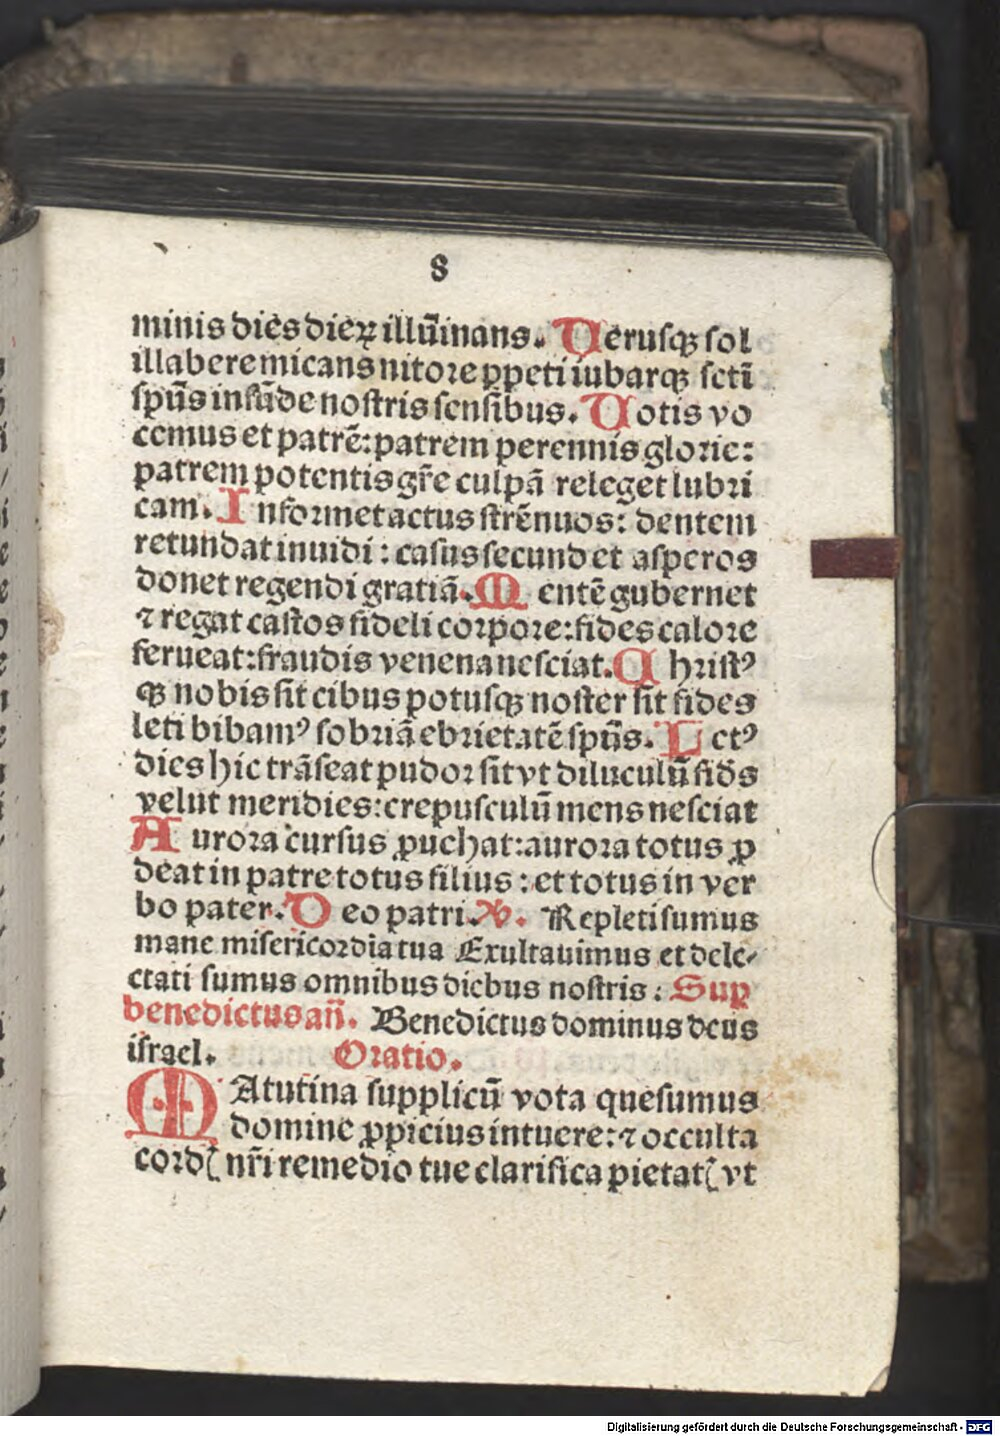 8
minis dies dieꝝ illũinans. Uerusqꝫ sol
illabere micans nitore ꝑpeti iubarqꝫ sctĩ
spũs infũde nostris sensibus. Uotis vo
cemus et patrẽ: patrem perennis glorie:
patrem potentis gr̃e culpã releget lubri
cam. Informet actus strẽnuos: dentem
retundat inuidi: casus secundet asperos
donet regendi gratiã. Mentẽ gubernet
⁊ regat castos fideli corpore: fides calore
ferueat: fraudis venena nesciat. Christꝰ
qꝫ nobis sit cibus potusqꝫ noster sit fides
leti bibamꝰ sobriã ebrietatẽ spũs. Letꝰ
dies hic trãseat pudor sit vt diluculũ fid̃s
velut meridies: crepusculũ mens nesciat
Aurora cursus ꝓuehat: aurora totus ꝓ
deat in patre totus filius: et totus in ver
bo pater. Deo patri. ℣. Repleti sumus
mane misericordia tua Exultauimus et dele-
ctati sumus omnibus diebus nostris: Suꝑ
benedictus añ. Benedictus dominus deus
israel. Oratio.
MAtutina supplicũ vota quesumus
domine ꝓpicius intuere: ⁊ occulta
cordꝭ nr̃i remedio tue clarifica pietatꝭ vt
Digitalisierung gefördert durch die Deutsche Forschungsgemeinschaft - DFG